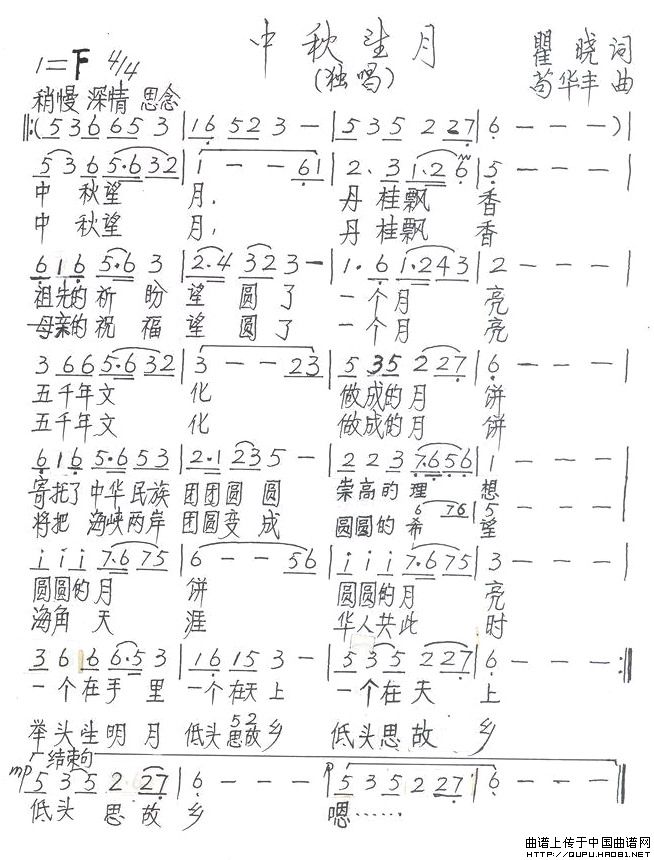 中秋望月
(独唱)
1=F 4/4
瞿晓词
苟华丰曲
稍慢 深情 思念
‖:(5 3 6 6 5 3 | 1 6 5 2 3 - | 5 3 5 2 2 7 | 6 - - - )|
5 3 6 5·6 3 2 | 1 - - 6 1 | 2· 3 1·2 6 | 5 - - - |
中 秋望 月, 丹桂飘 香
中 秋望 月, 丹桂飘 香
6 1 6 5·6 3 | 2·4 3 2 3 - | 1· 6 1·2 4 3 | 2 - - - |
祖先的祈盼 望圆了 一个月 亮
母亲的祝福 望圆了 一个月 亮
3 6 6 5·6 3 2 | 3 - - 2 3 | 5 3 5 2 2 7 | 6 - - - |
五千年文 化 做成的月 饼
五千年文 化 做成的月 饼
6 1 6 5·6 5 3 | 2·1 2 3 5 - | 2 2 3 7·6 5 6 | 1 - - - |
寄托了中华民族 团团圆圆 崇高的理 想
6 7 6 | 5 - - - |
将把 海峡两岸 团圆变成 圆圆的希 望
i i i 7·6 7 5 | 6 - - 5 6 | i i i 7·6 7 5 | 3 - - - |
圆圆的月 饼 圆圆的月 亮
海角天 涯 华人共此 时
3 6 1 6 6·5 3 | 1 6 1 5 3 - | 5 3 5 2 2 7 | 6 - - - :‖
一个在手里 一个在天上 一个在天 上
5 2
举头望明月 低头思故乡 低头思故 乡
结束句
mp 5 3 5 2 2 7 | 6 - - - | p 5 3 5 2 2 7 | 6 - - - ‖
低头 思故 乡 嗯……
曲谱上传于中国曲谱网
HTTP://QUPU.HAO81.NET